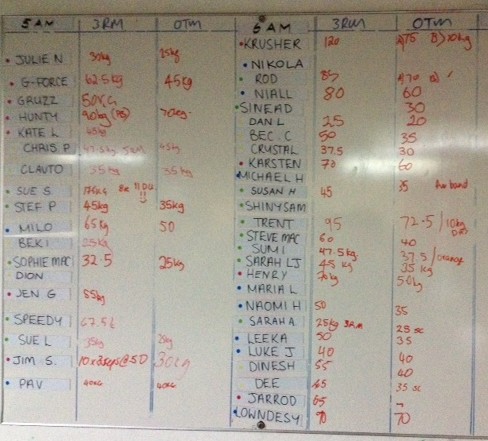 5 AM 3RM OTM
JULIE N 30kg 25kg
G-FORCE 62.5kg 45kg
GRUZZ 50KG
HUNTY 90kg (PB) 70kg
KATE L 45kg
CHRIS. P 45kg
CLAUTO 55kg 35kg
SUE S.
STEF P 45kg 35kg
MILO 65kg 50
BEKI 25kg
SOPHIE MAC 32.5 25kg
DION
JEN G 55kg
SPEEDY 67.5k
SUE L 35kg 25kg
JIM S. 10x3reps@50 30kg
PAV 40KG 40KG
6 AM 3RM OTM
KRUSHER 120 A)75 B)10kg
NIKOLA
ROD 85 A)70 B)
NIALL 80 60
SINEAD 30
DAN L 25 20
BEC. C 50 35
CRYSTAL 37.5 30
KARSTEN 70 60
MICHAEL H
SUSAN H 45 35 band
SHINYSAM
TRENT 95 72.5/10kg
STEVE MAC 60 40
SUMI 47.5kg 37.5/orange
SARAH LJ 45 kg 35 kg
HENRY 70kg 50kg
MARIA L
NAOMI H 50 35
SARAH A 25kg 3RM 25
LEEKA 50 35
LUKE J 40 40
DINESH 55 40
DEE 45 35
JARROD 65
LOWNDESY 90 70